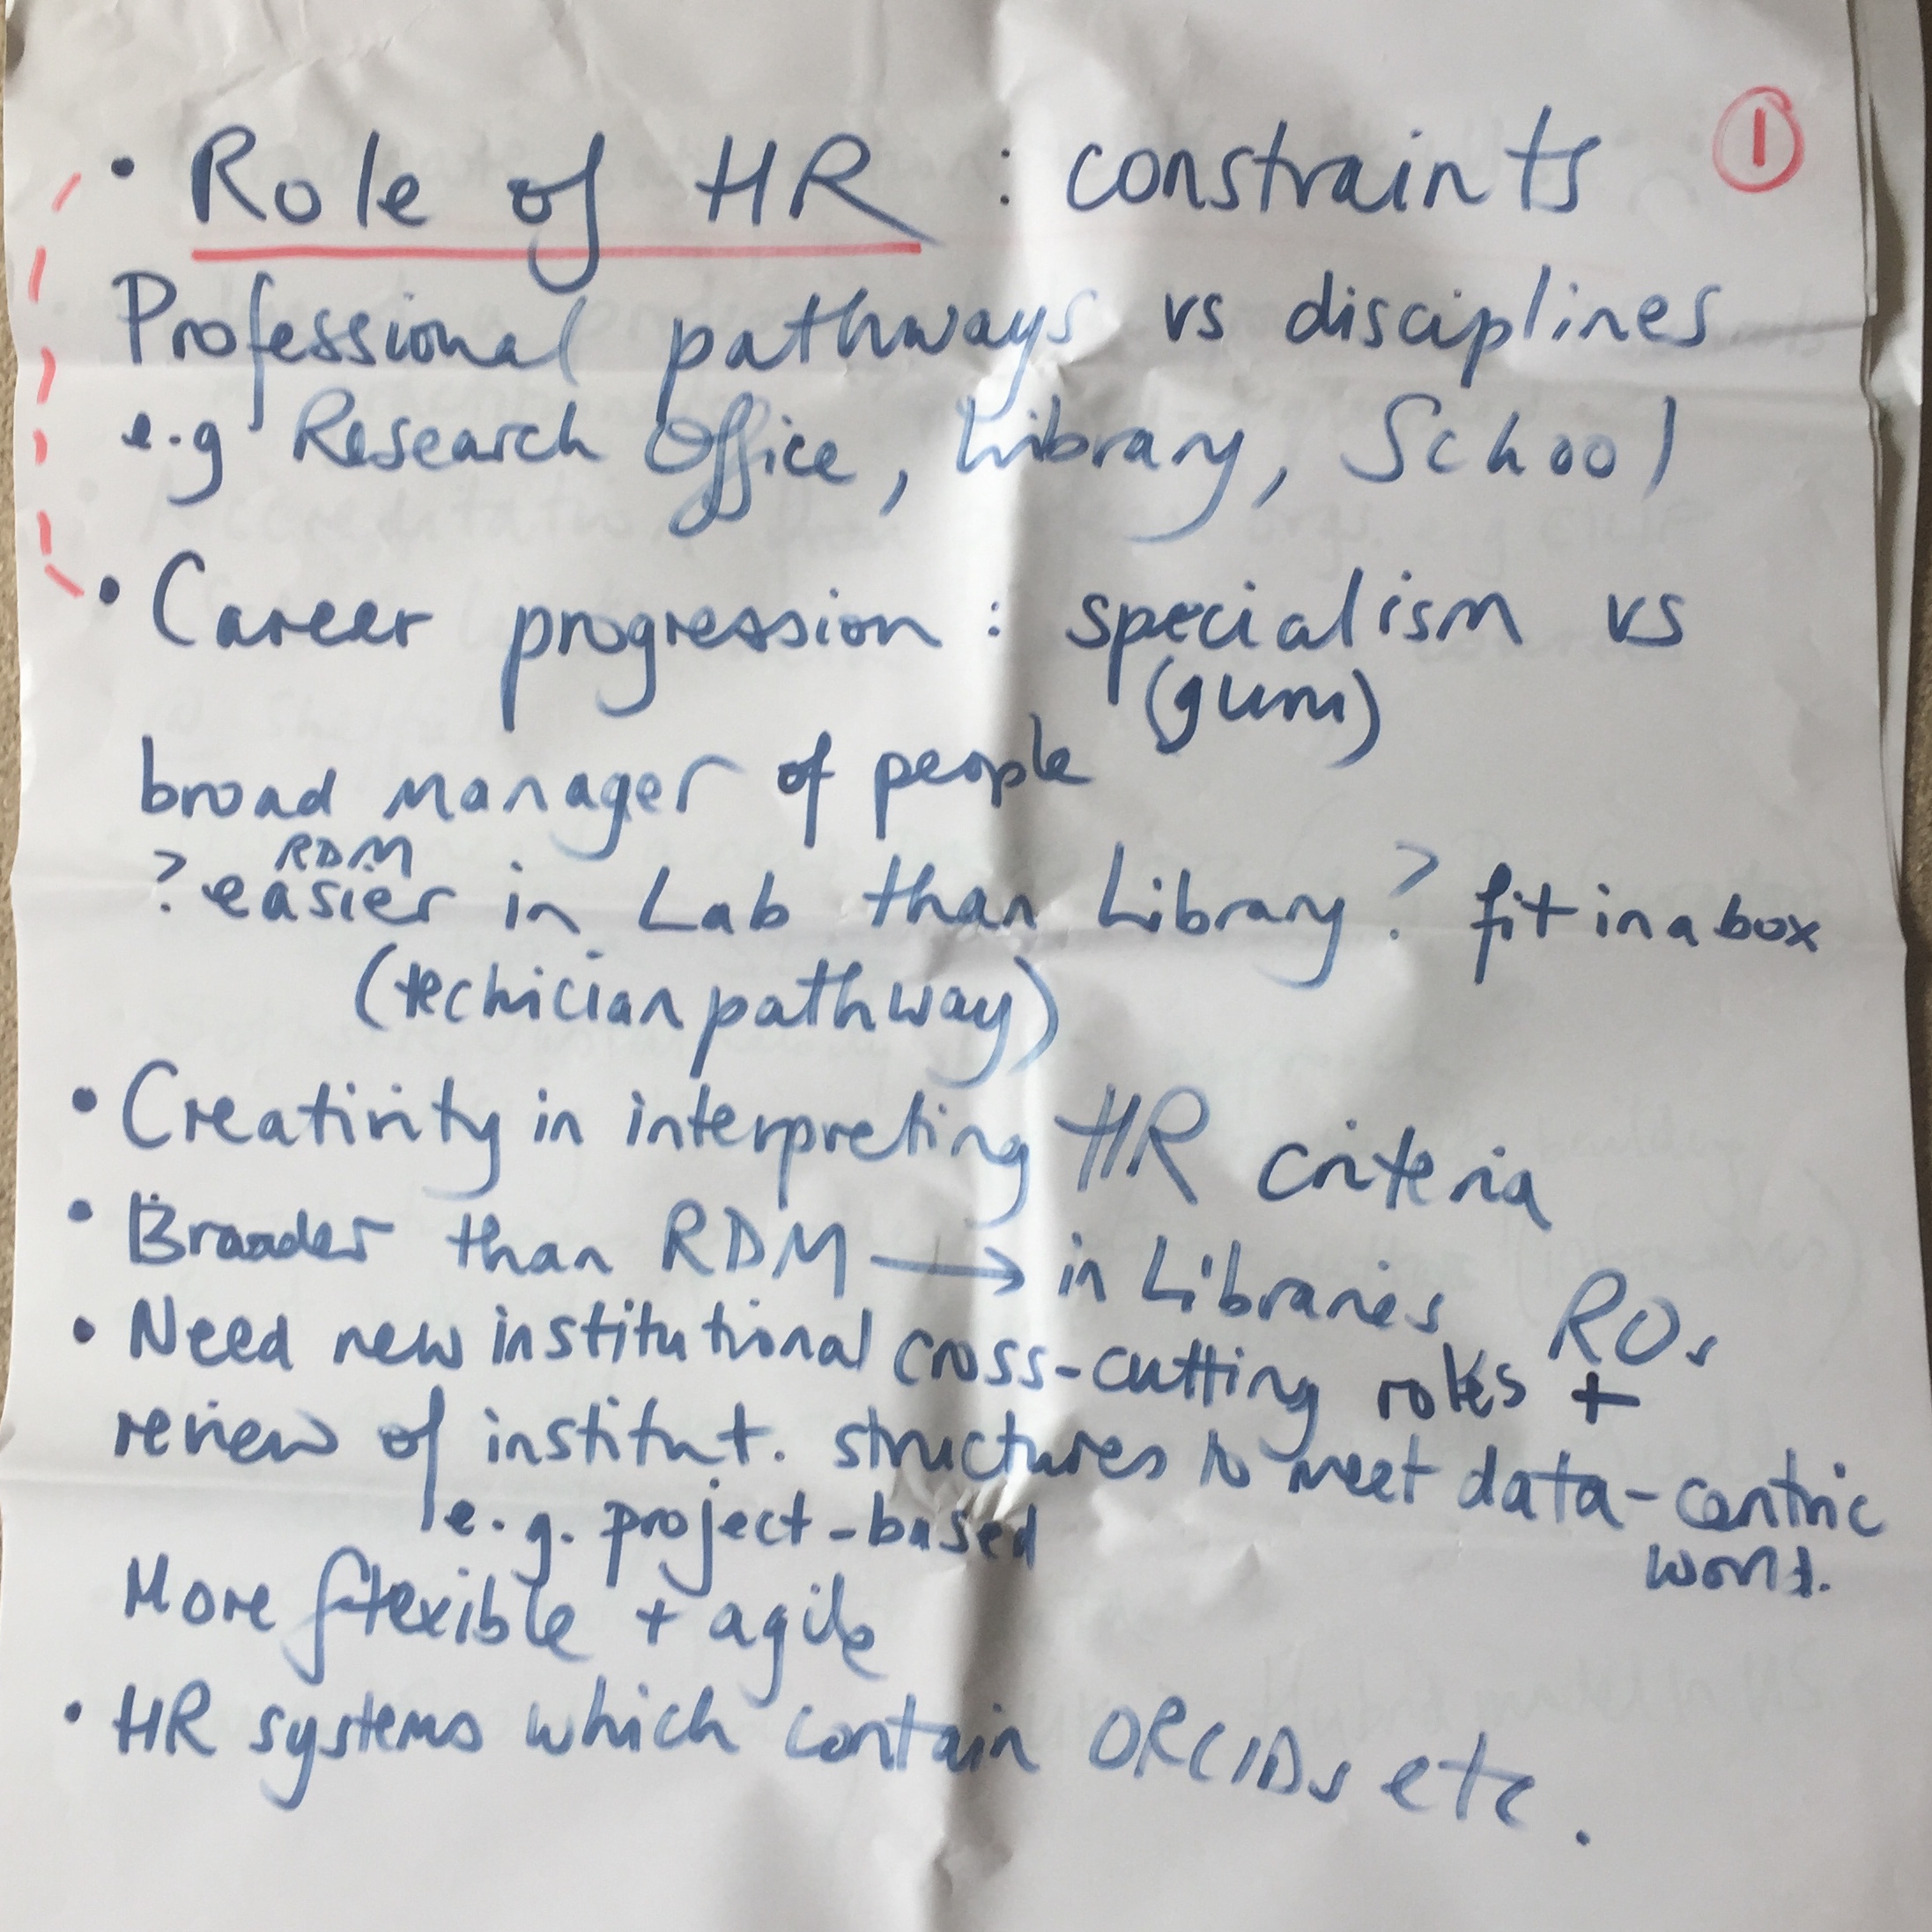 ①
• Role of HR : constraints
Professional pathways vs disciplines
e.g Research Office, Library, School
• Career progression : specialism vs
(guru)
broad manager of people
RDM
? easier in Lab than Library? fit in a box
(techician pathway)
• Creativity in interpreting HR criteria
• Broader than RDM → in Libraries, ROs
• Need new institutional cross-cutting roles +
review of institut. structures to meet data-centric
world.
e.g. project-based
More flexible + agile
• HR systems which contain ORCIDs etc.